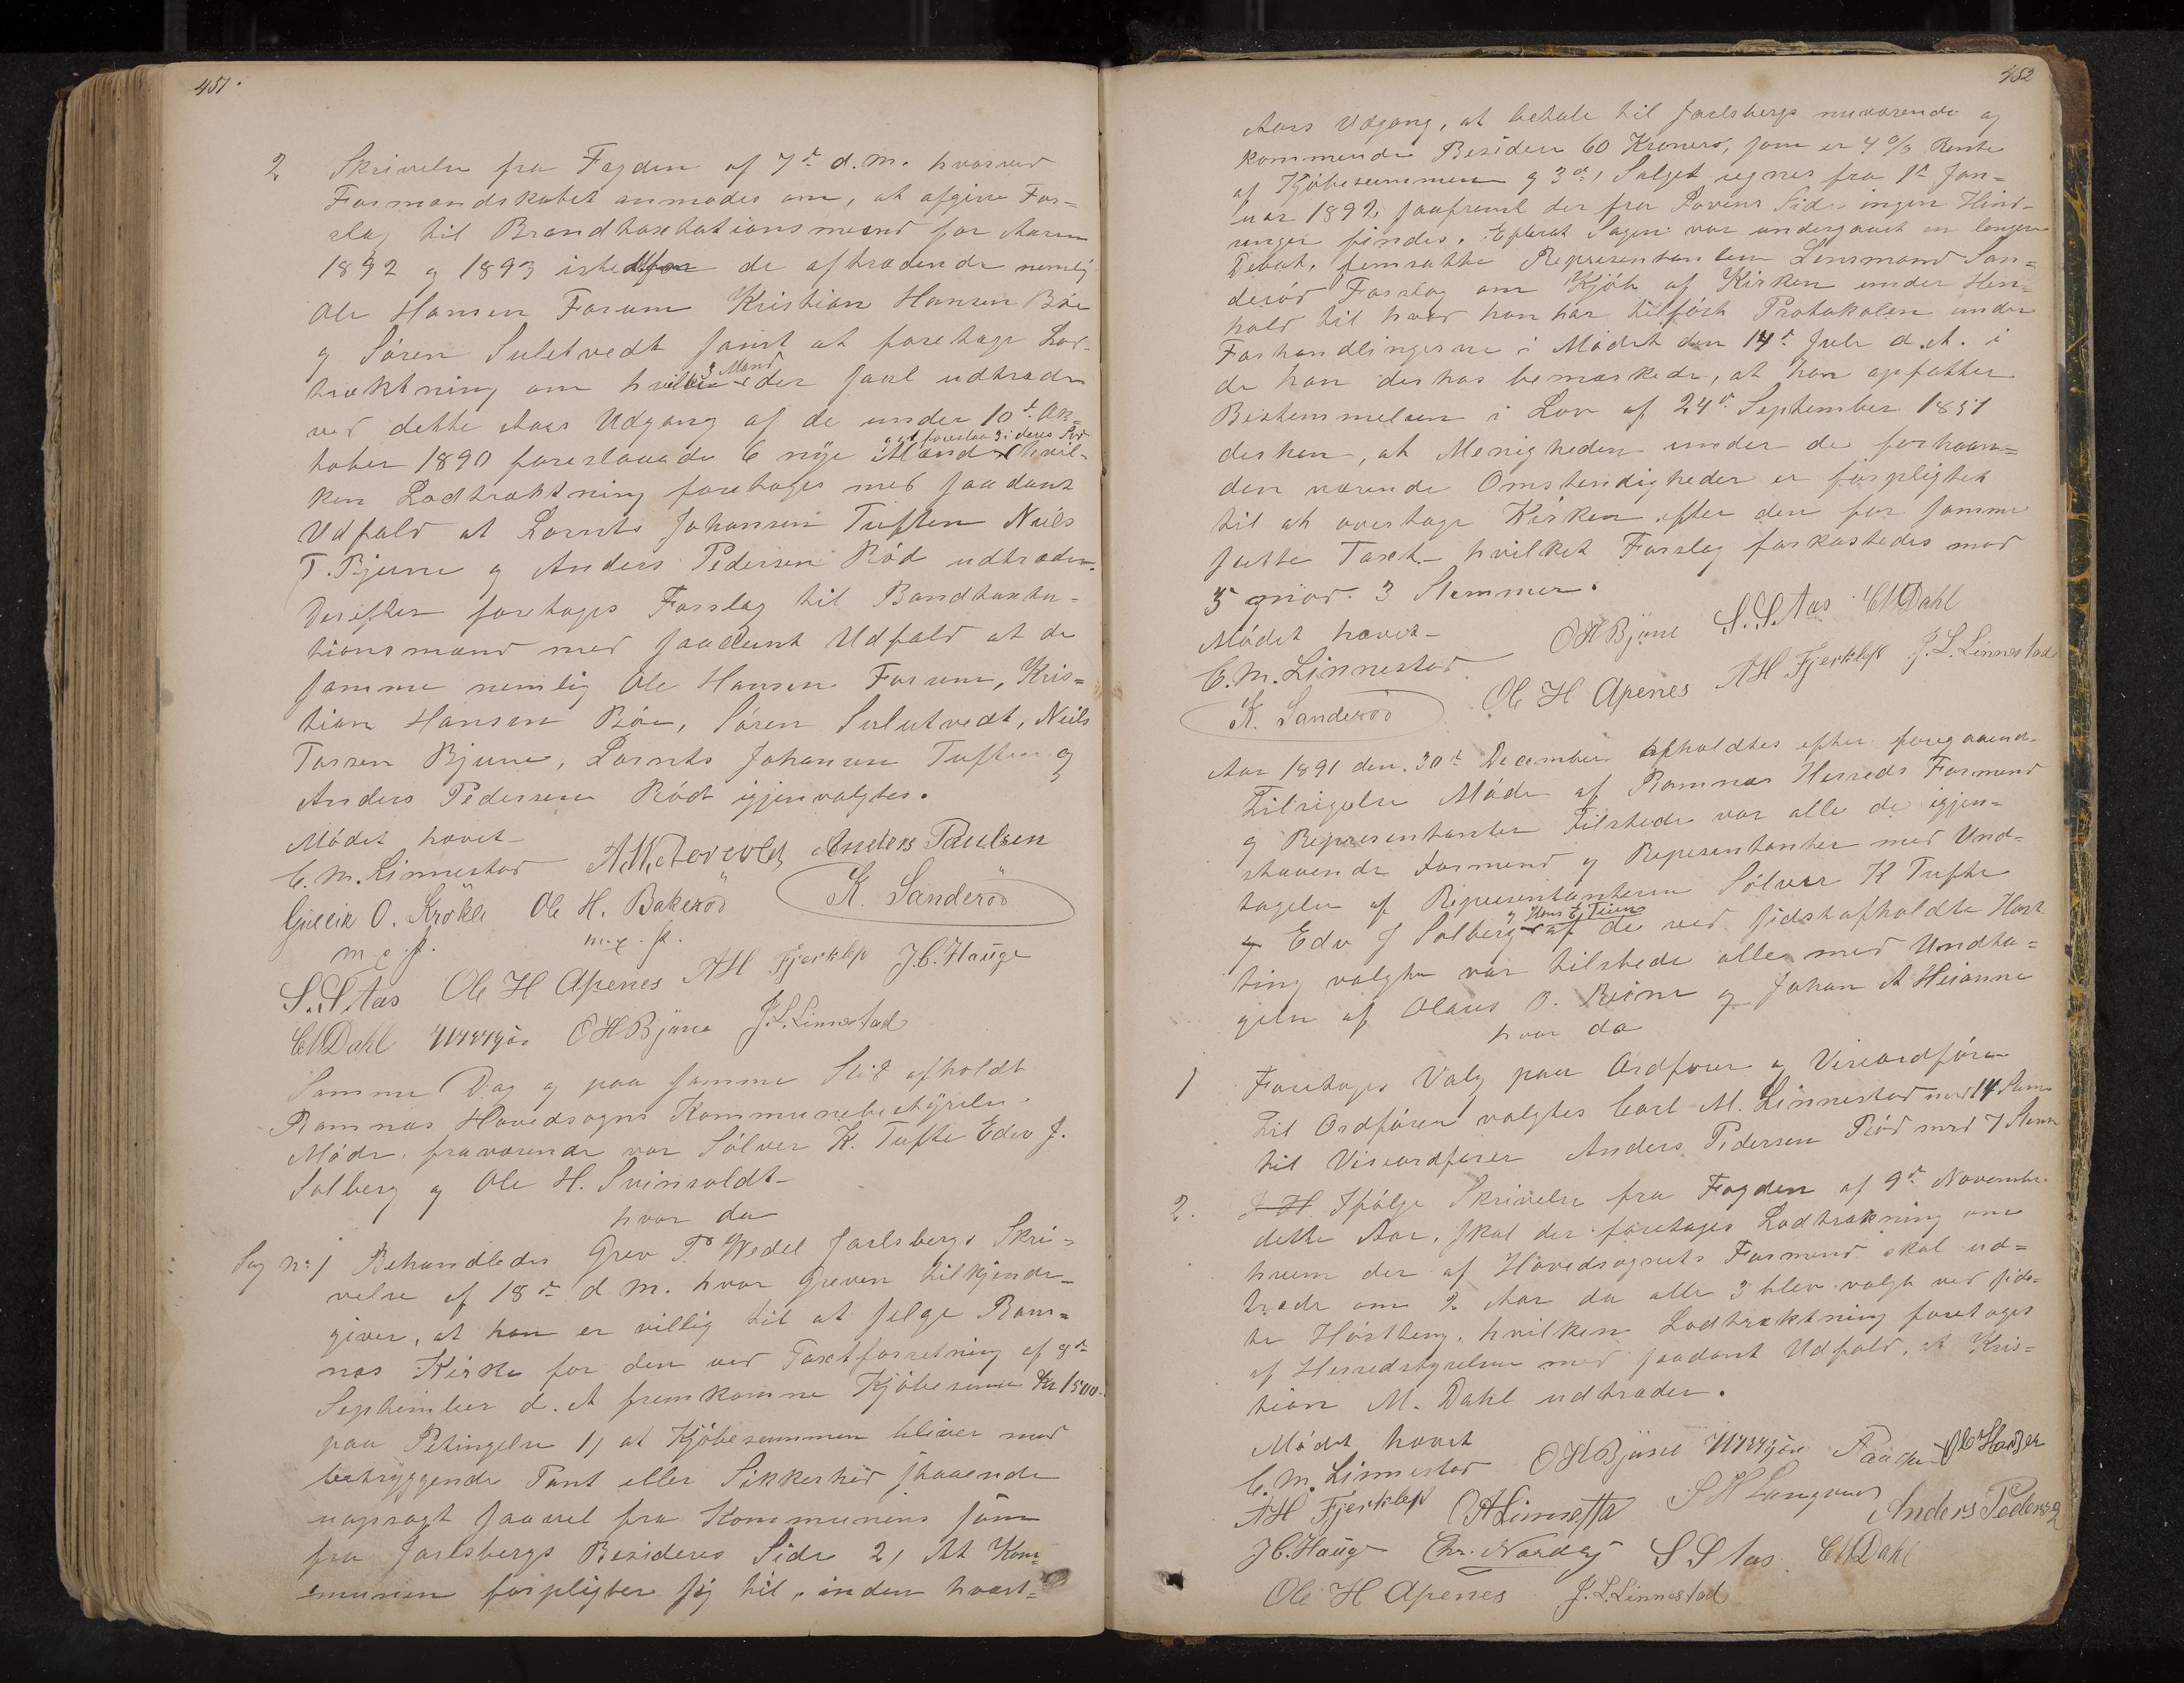 451.
2 Skrivelse fra Fogden af 7de d.M. hvorved
Formandskabet anmodes om, at afgive For=
slag til Brandtaxtationsmænd for Aarene
1892 og 1893 istedetfor de aftrædende nemlig
Ole Hansen Forum Kristian Hansen Böe
og Sören Suletvedt samt at foretage Lod-
trækning om hvilke 3 Mænd der skal udtræde
ved dette Aars Udgang af de under 10de Ok=
tober 1890 foreslaaede 6 nye Mænd og at foreslaa 3 i deres Sted hvil=
ken Lodtrækning foretoges med saadant
Udfald at Lornts Johansen Tuften Niels
T. Bjune og Anders Pedersen Röd udtræder.
Derefter foretoges Forslag til Bandtaxta=
tionsmænd med saadant Udfald at de
samme nemlig Ole Hansen Forum, Kris=
tian Hansen Böe, Sören Sulutvedt, Niels
Torsen Bjune, Lornts Johansen Tuften og
Anders Pedersen Rödt igjenvalgtes.
Mödet hævet
C. M. Linnestad Anders Paulsen
Gullik O. Krökli Ole H. Bakeröd K. Sanderöd
m. p. p. m. p. p.
S. S. Aas Ole H Apenes AH Fjerklep J.C. Hauge
CM Dahl OH Bjune J. L. Linnestad
Samme Dag og paa samme Sted afholdt
Ramnæs Hovedsogns Kommunebestyrelse
Möde, fraværende var Sölver K. Tufte Edv J.
Solberg og Ole H. Svinsholdt
hvor da
Sag No 1 Behandledes Grev P. Wedel Jarlsbergs Skri=
velse af 18de d M. hvor Greven tilkjende=
giver, at han er villig til at sælge Ram=
næs Kirke for den ved Taxtforretning af 8de
September d. A fremkomne Kjöbesum Kr 1500
paa Betingelse 1, at Kjöbesummen bliver mod
betryggende Pant eller Sikkerhed staaende
uopsagt saavel fra Kommunens som
fra Jarlsbergs Besideres Side 2, At Kom=
munen forpligter sig til, inden hvert=
452
Aars Udgang, at betale til Jarlsbergs nuværende og
kommende Besidere 60 Kroner, som er 4 % Rente
af Kjöbesummen og 3de, Salget regnes fra 1de Jan=
uar 1892 saafremt der fra Lovens Side ingen Hind=
ringer findes. Efterat Sagen var undergaaet en længere
Debat, fremsatte Repræsentanten Lensmand San=
deröd Forslag om Kjöb af Kirken under Hen=
hold til hvad han har tilfört Protokolen under
Forhandlingerne i Mödet den 14de Juli d.A. i
de han derhos bemærkede, at han opfatter
Bestemmelsen i Lov af 24de September 1851
derhen, at Menigheden under de forhaan=
den værende Omstendigheder er forpligtet
til at overtage Kirken efter den for samme
satte Taxt - hvilket Forslag forkastedes mod
5 mod 3 Stemmer.
Mödet hævet OH Bjune S. S. Aas CM Dahl
C. M. Linnestad
K. Sanderöd Ole H Apenes AH Fjerklep J. L. Linnestad
Aar 1891 den 30de December afholdtes efter foregaaende
Tilsigelse Möde af Ramnæs Herreds Formænd
og Repræsentanter Tilstede var alle de igjen=
staaende Formænd og Repræsentanter med Und=
tagelse af Repræsentanterne Sölver K Tufte
og Edv J Solberg og Hans E Tiune af de ved sidstafholdte Höst
ting valgte var tilstede alle med Undta=
gelse af Olaus O. Reine og Johan A Heianne
hvor da
1 Foretoges Valg paa Ordförer og Viseordförer
til Ordförer valgtes Carl M. Linnestad med 14 Stem
til Viseordförer Anders Pedersen Röd med 7 Stem
2. Ifölge Skrivelse fra Fogden af 9de November
dette Aar, skal der foretages Lodtrækning om
hvem der af Hovedsognets Formænd skal ud=
træde om 2 Aar da alle 3 blev valgt ved sids=
te Höstting, hvilken Lodtrækning foretoges
af Herredstyrelsen med saadant Udfald, at Kris=
tian M. Dahl udtræder.
Mödet hævet
C. M. Linnestad OH Bjune
AH Fjerklep Anders Pedersen
J.C. Hauge Chr. Nordby S S Aas CM Dahl
Ole H Apenes J. L. Linnestad